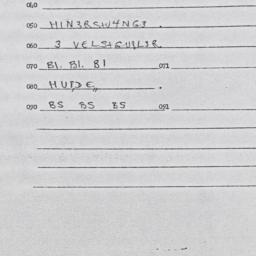 040
050 HIN3RSW4NG3 .
060 3 VELS
070 B1. B1. B1 071
080 HUIDE,, .
090 BS BS BS 091